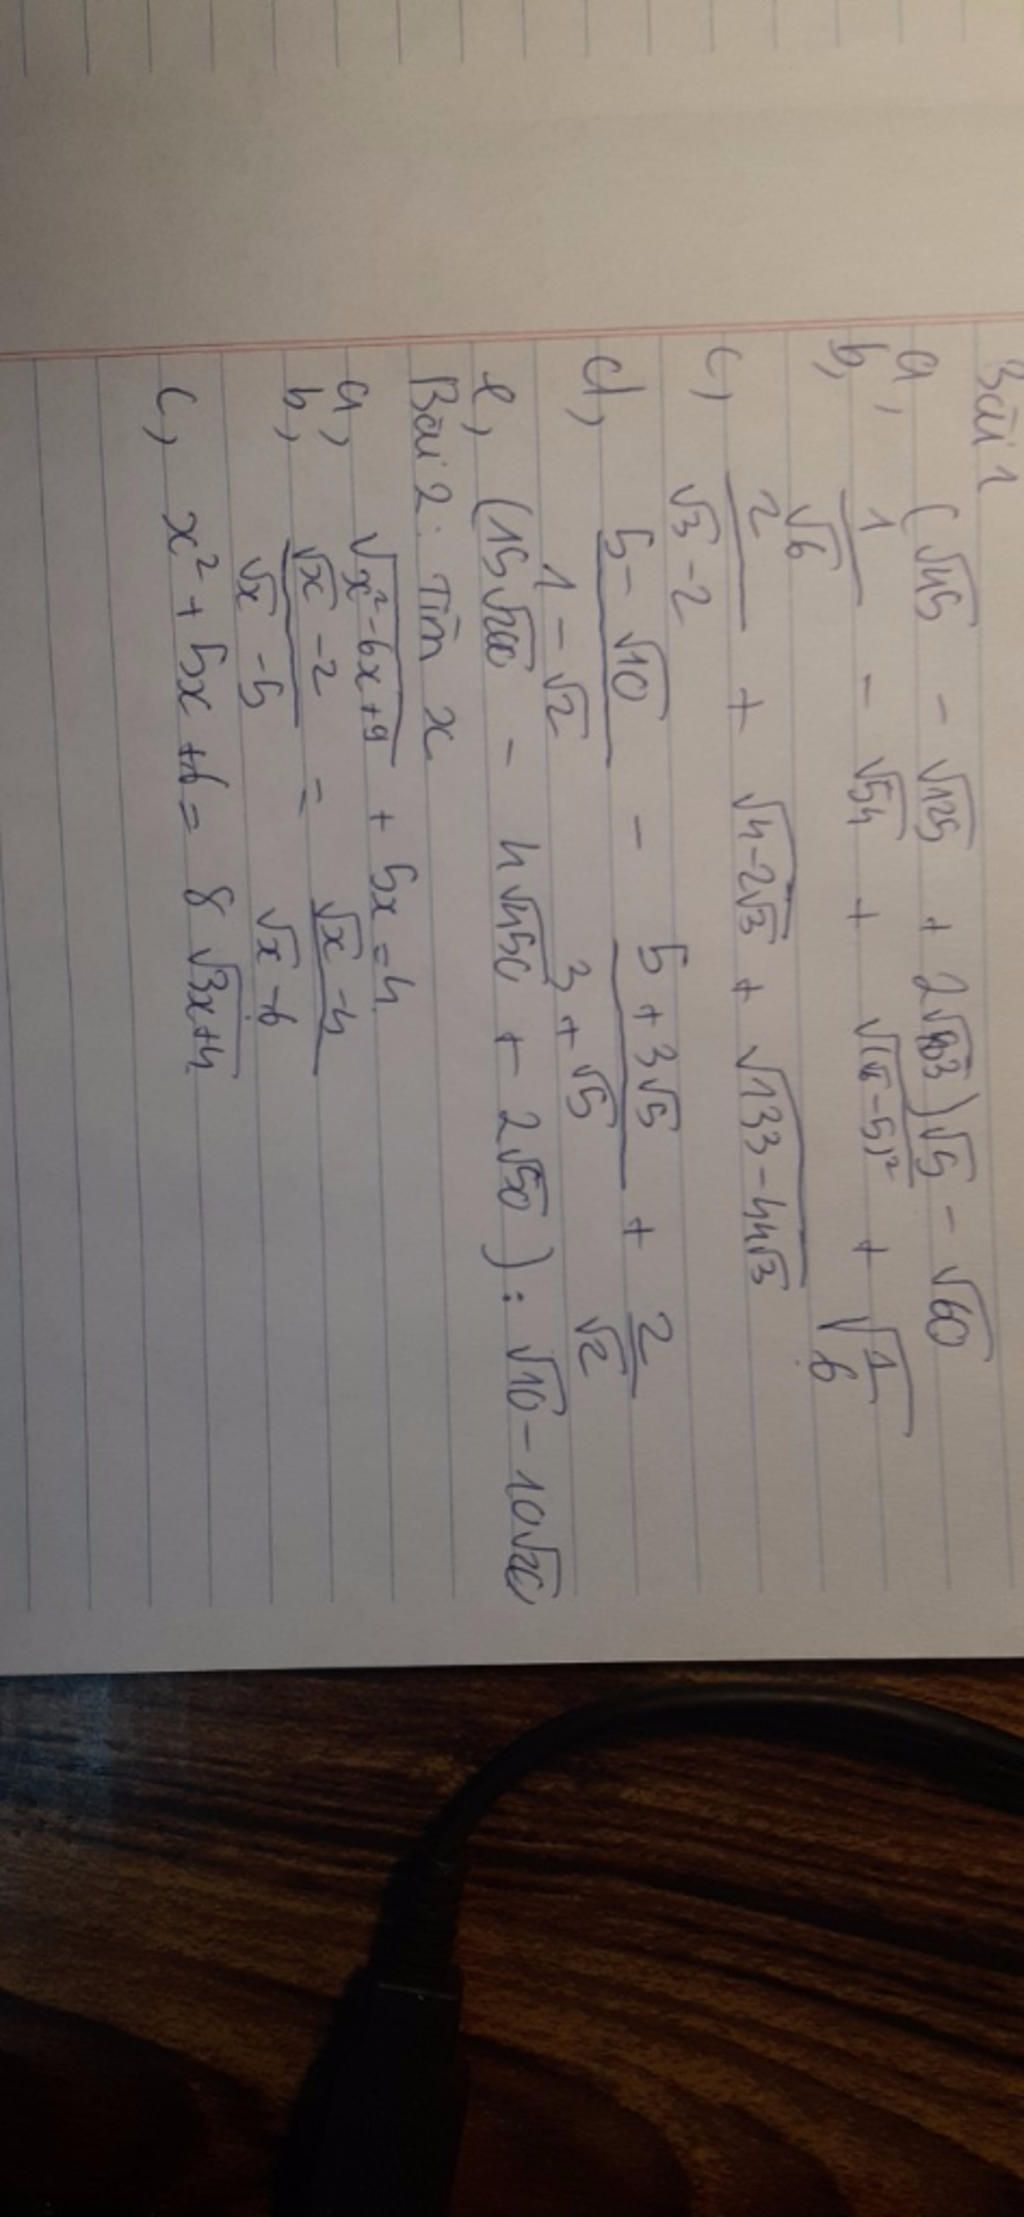 Bài 1
a, (√45 - √125 + 2√3)√5 - √60
b, 1/√6 - √54 + √(√6 - 5)² + √(1/6)
c, 2/(√3 - 2) + √(4 - 2√3) + √(133 - 44√3)
d, (5 - √10)/(1 - √2) - (5 + 3√5)/(3 + √5) + 2/√2
e, (15√200 - 4√450 + 2√50) : √10 - 10√20
Bài 2: Tìm x
a, √(x² - 6x + 9) + 5x = 4
b, (√x - 2)/(√x - 5) = (√x - 4)/(√x - 6)
c, x² + 5x + 6 = 8√(3x + 4)